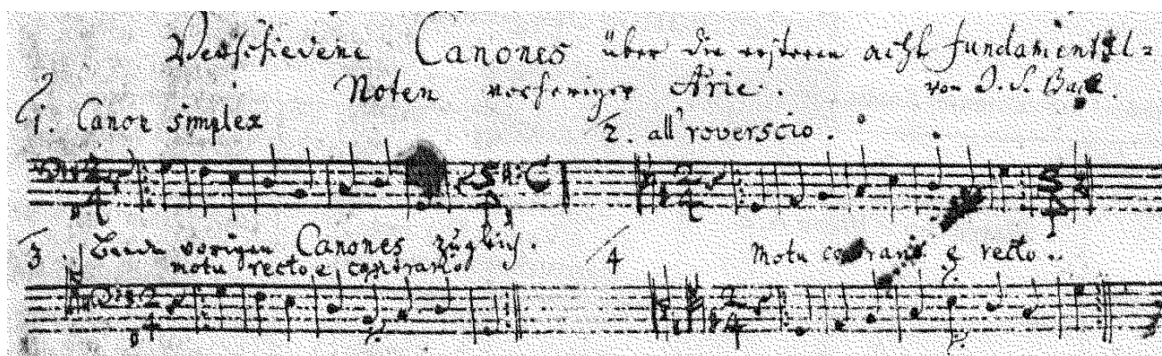 Verschiedene Canones über die ersteren acht Fundamental=
Noten vorheriger Arie. von J. S. Bach.
1. Canon simplex
2. all' roverscio.
3. Beede vorigen Canones zugleich.
motu recto e contrario
4 motu contrario e recto.